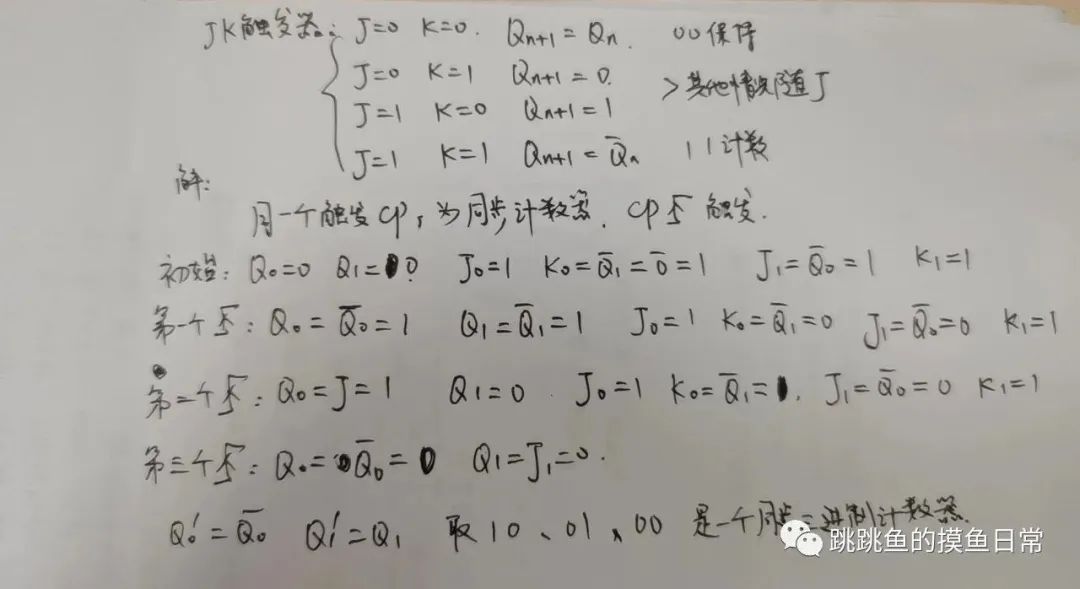 JK触发器: J=0 K=0. Qn+1=Qn. 00保持
J=0 K=1 Qn+1=0. >其他情况随J
J=1 K=0 Qn+1=1
J=1 K=1 Qn+1=Q̄n 11计数
解:
同一个触发CP, 为同步计数器. CP 触发.
初始: Q0=0 Q1=0. J0=1 K0=Q̄1=0̄=1 J1=Q̄0=1 K1=1
第一个: Q0=Q̄0=1 Q1=Q̄1=1 J0=1 K0=Q̄1=0 J1=Q̄0=0 K1=1
第二个: Q0=J=1 Q1=0. J0=1 K0=Q̄1=1. J1=Q̄0=0 K1=1
第三个: Q0=Q̄0=0 Q1=J1=0.
Q0'=Q̄0 Q1'=Q1 取10、01、00 是一个同步三进制计数器
跳跳鱼的摸鱼日常